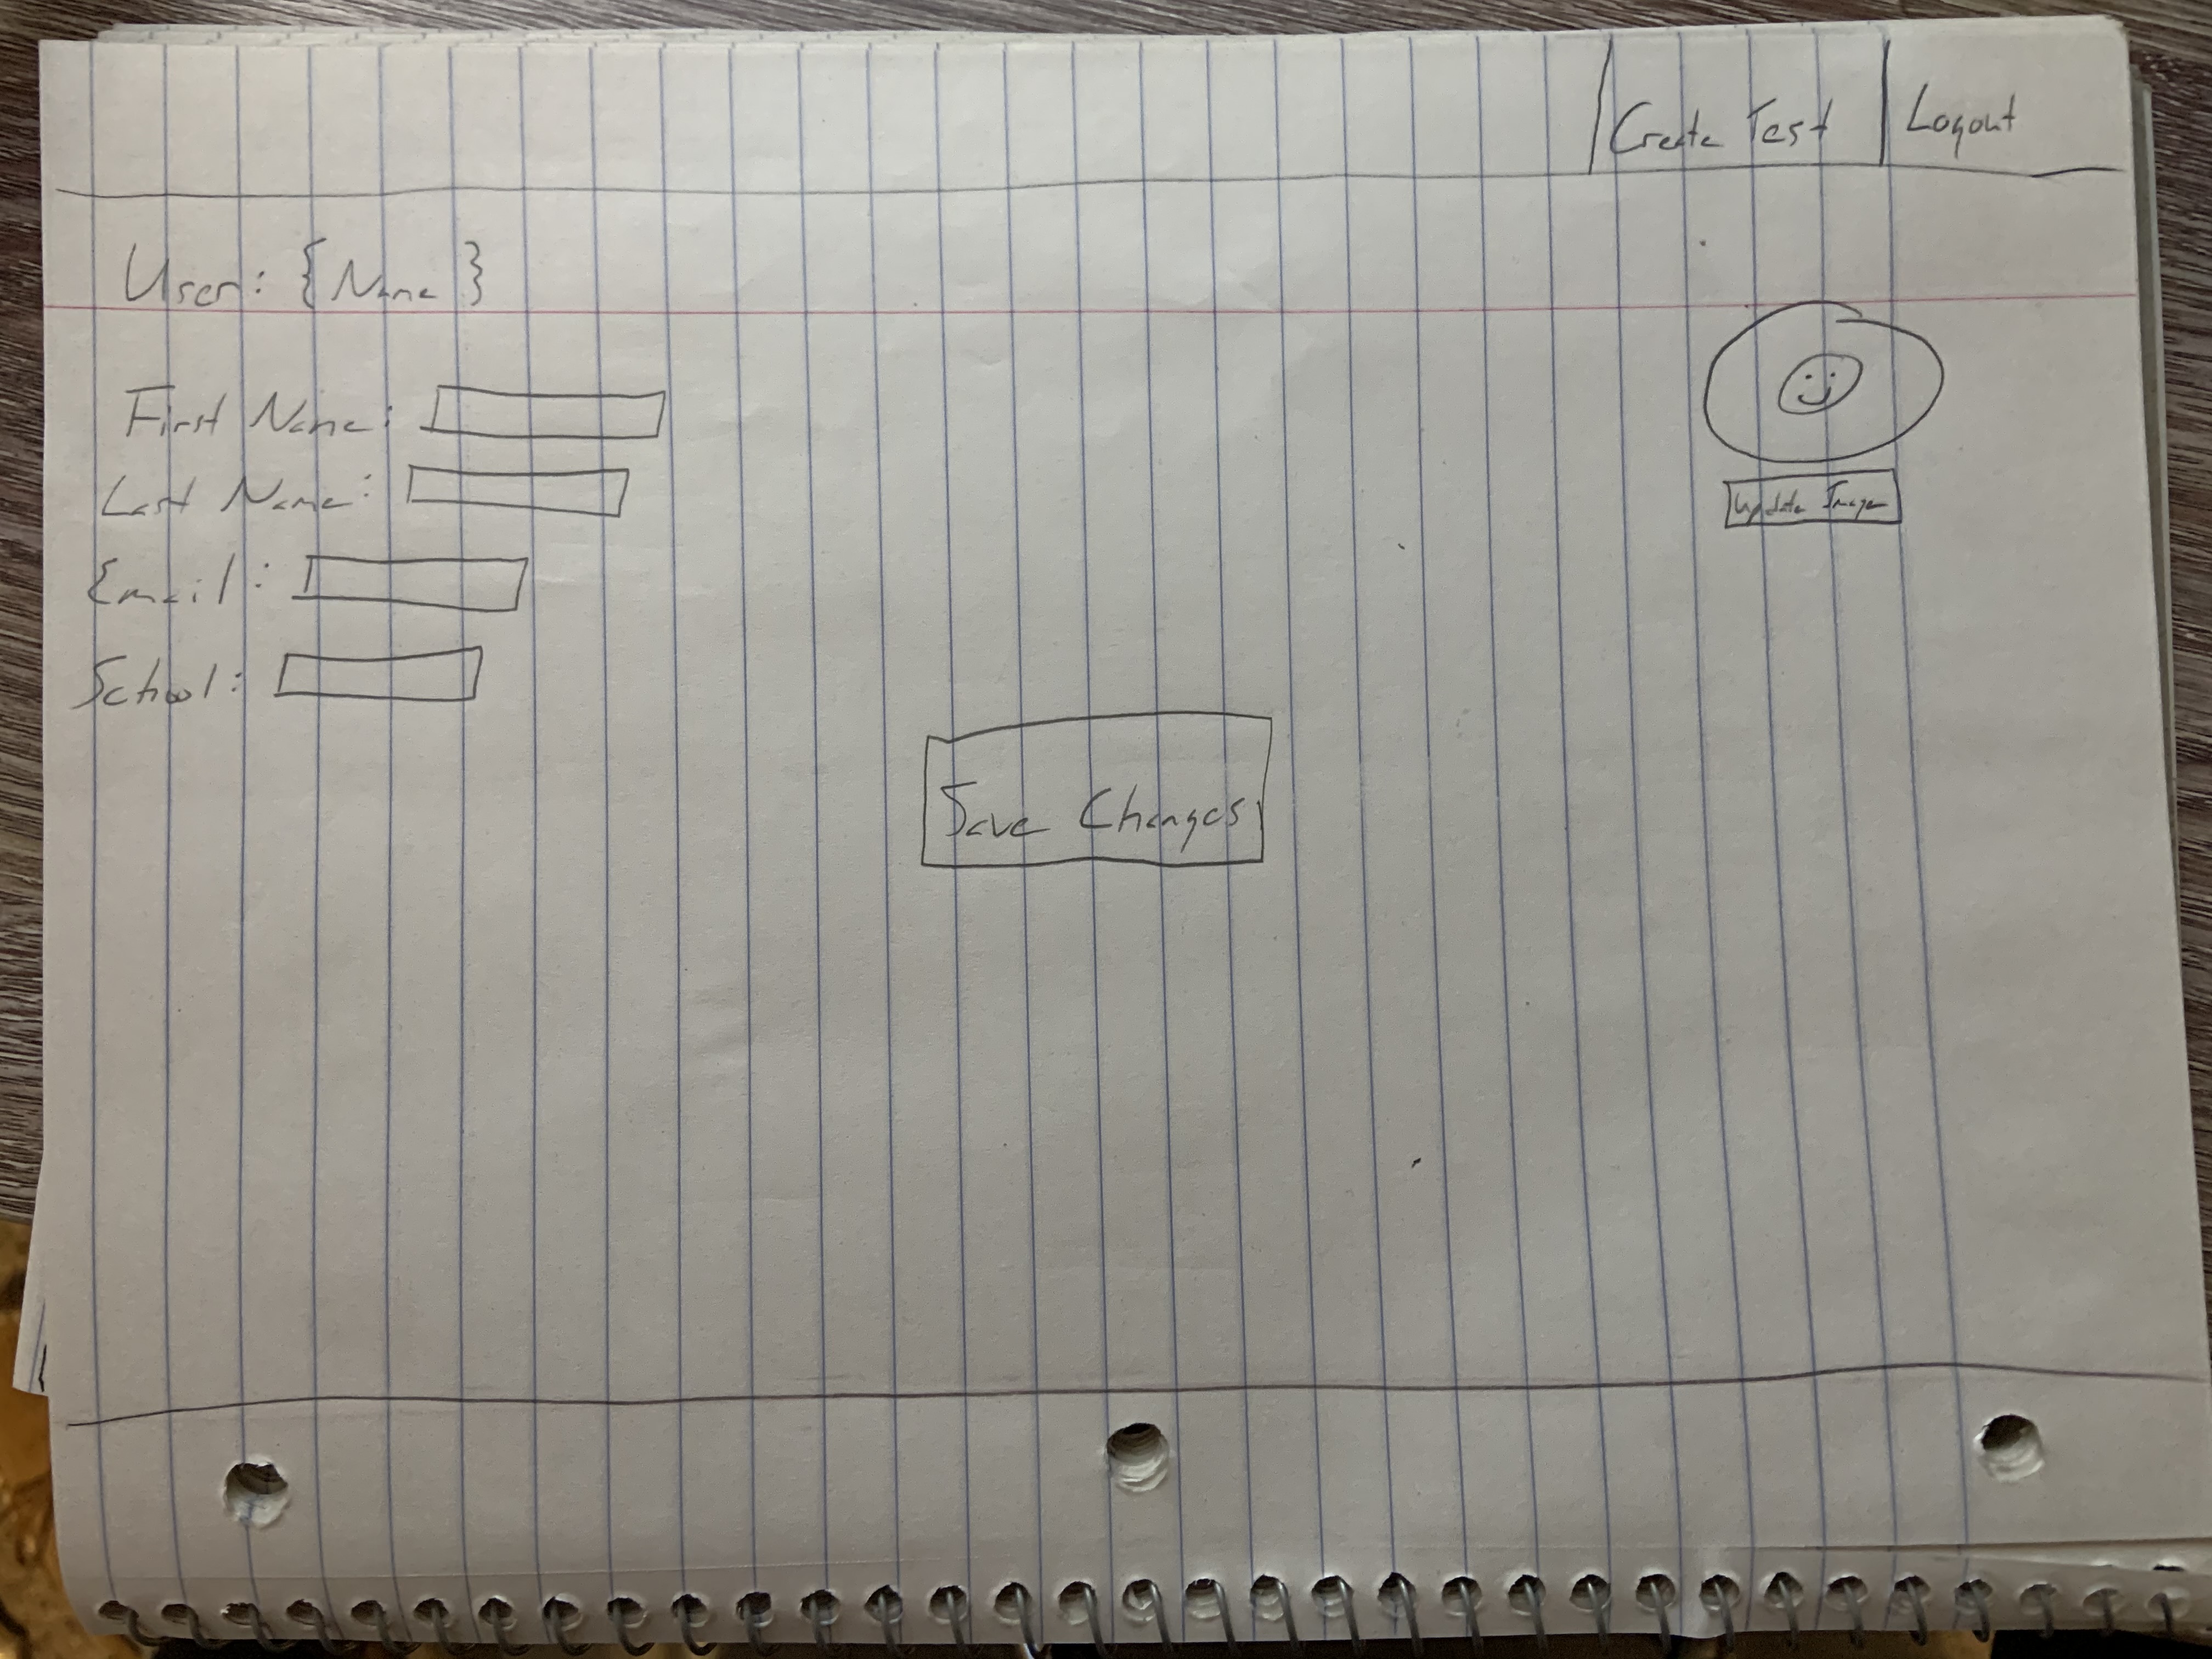 Create Test Logout
User: {Name}
First Name:
Last Name:
Email:
School:
Update Image
Save Changes